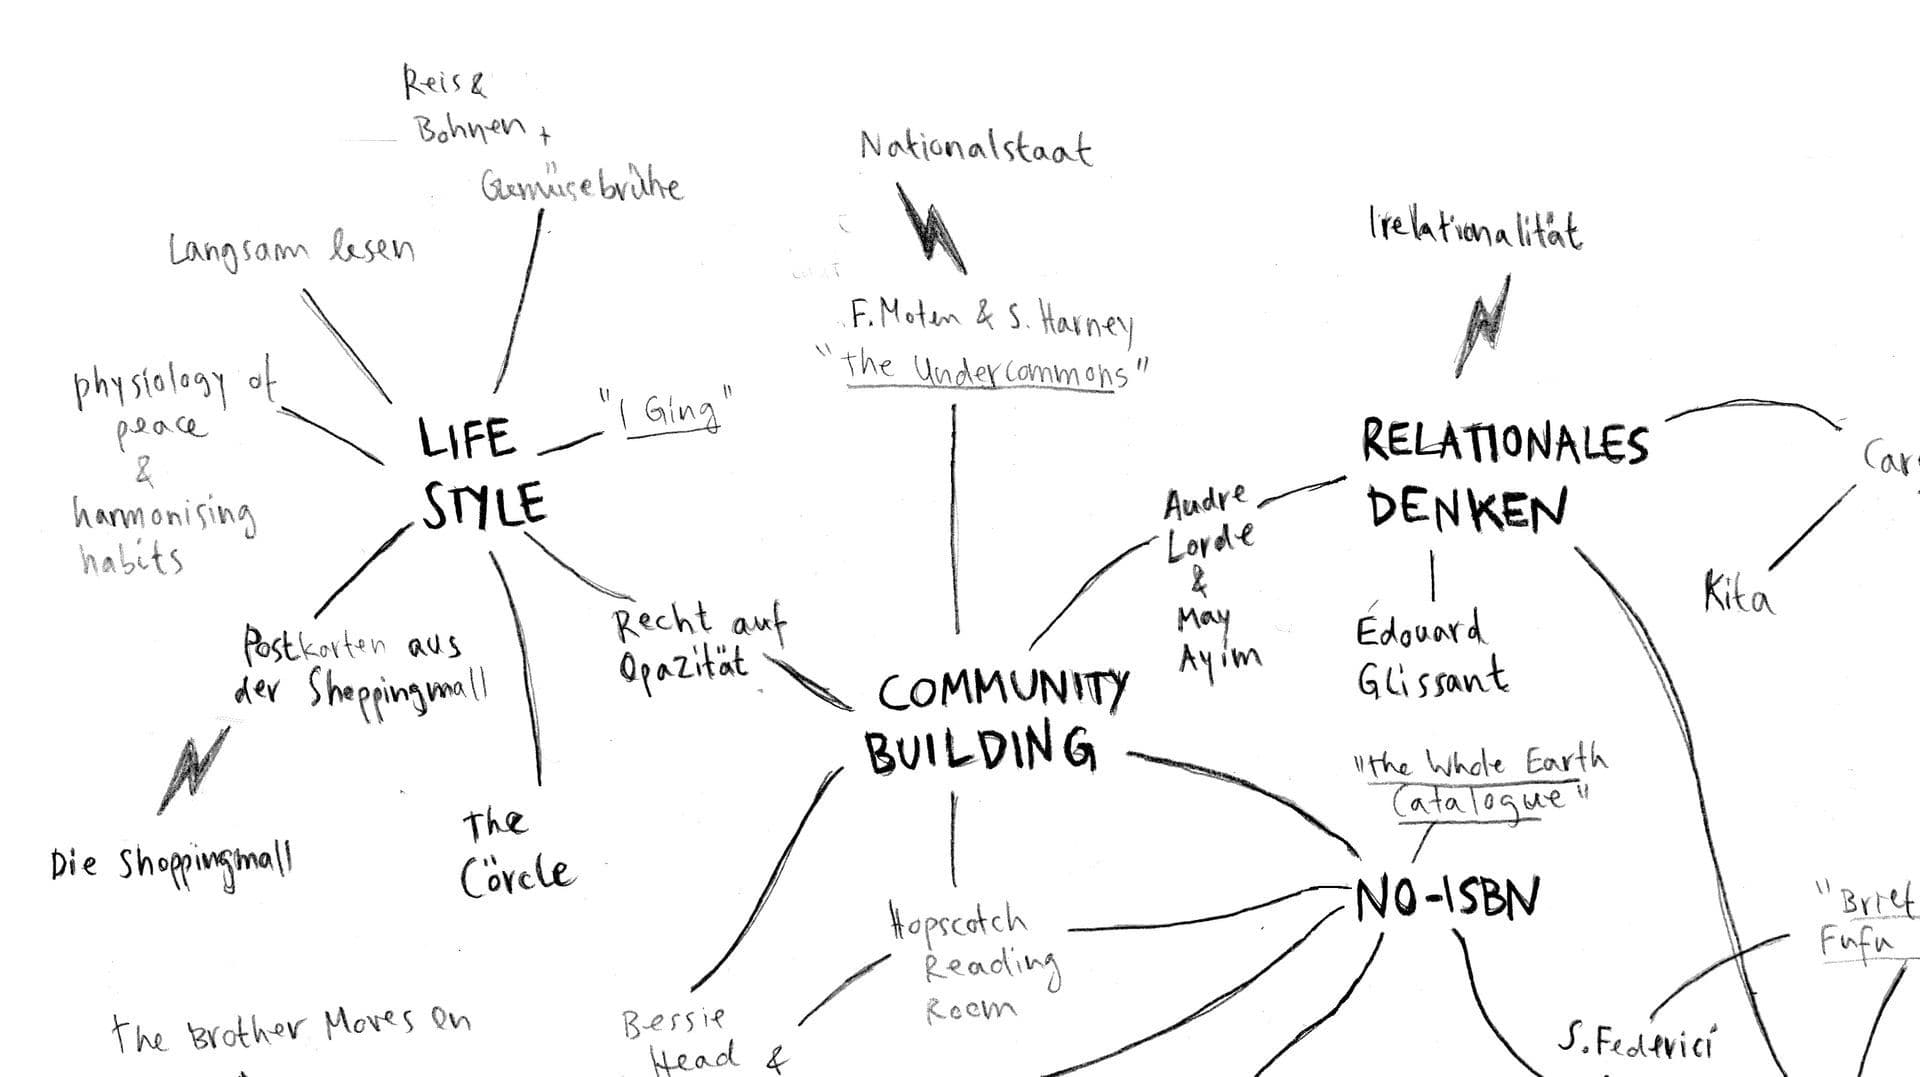 Reis &
Bohnen +
Gemüsebrühe
Langsam lesen
physiology of
peace
&
harmonising
habits
LIFE
STYLE
"I Ging"
Postkarten aus
der Shoppingmall
Die Shoppingmall
The
Cörcle
Recht auf
Opazität
Nationalstaat
F. Moten & S. Harney
"The Undercommons"
COMMUNITY
BUILDING
Audre
Lorde
&
May
Ayim
Irelationalität
RELATIONALES
DENKEN
Édouard
Glissant
Kita
"The Whole Earth
Catalogue"
NO-ISBN
Hopscotch
Reading
Room
Bessie
Head &
The Brother Moves On
"Brief
Fufu
S. Federici